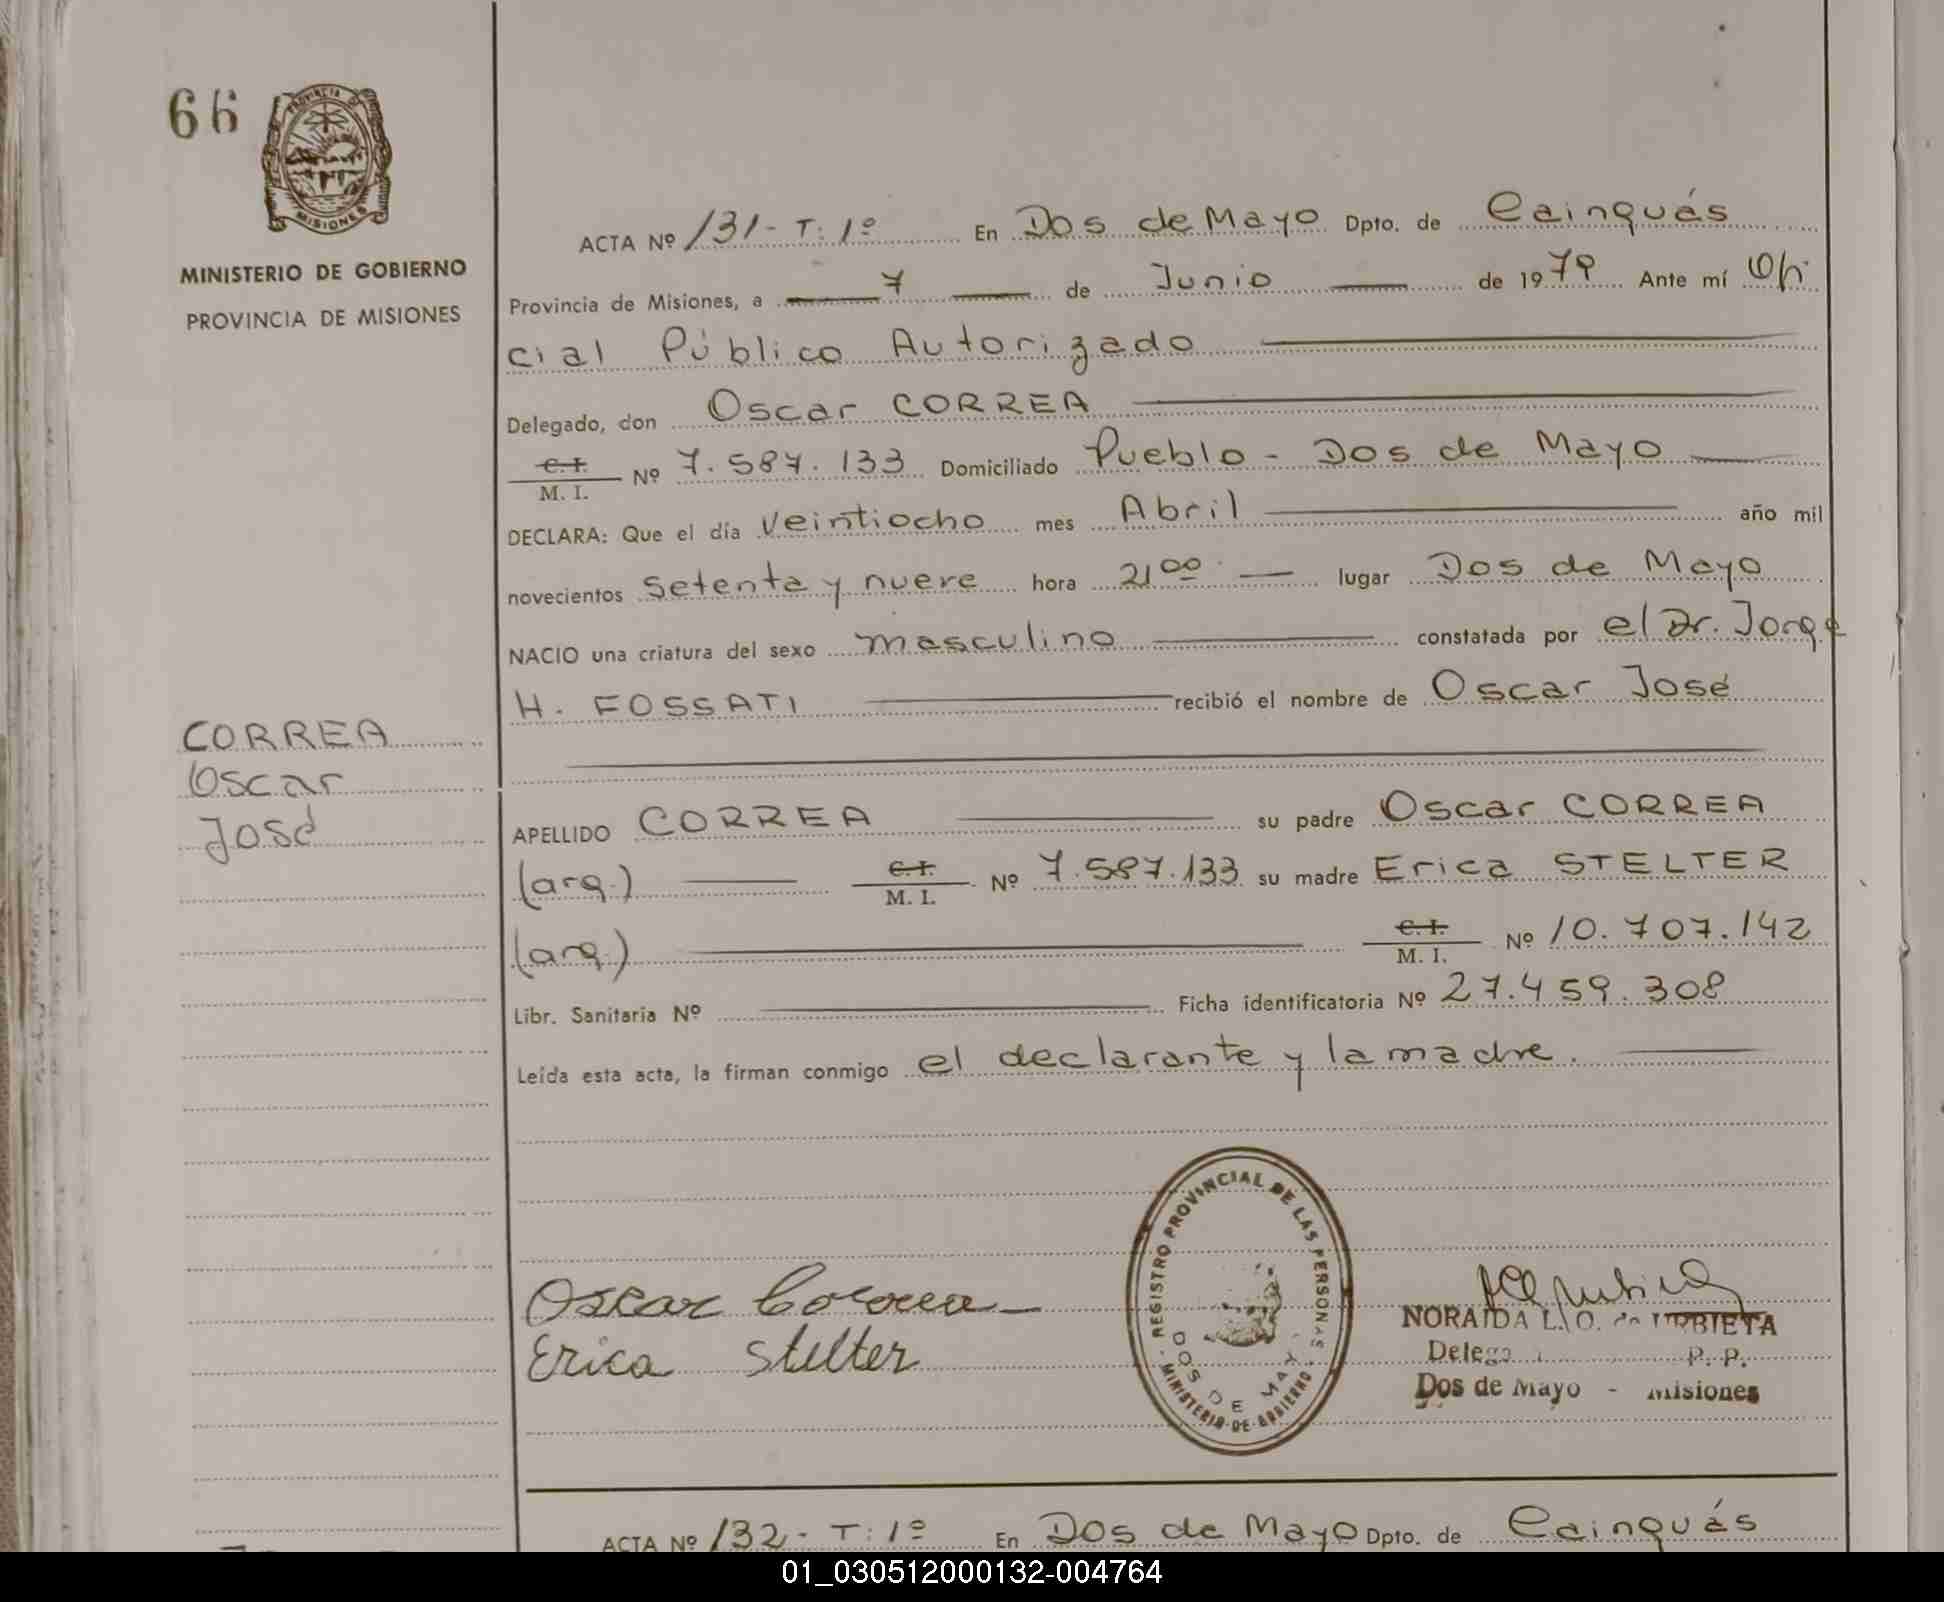 66
PROVINCIA DE
MISIONES
MINISTERIO DE GOBIERNO
PROVINCIA DE MISIONES
ACTA Nº 131- T: 1º En Dos de Mayo Dpto. de Cainguás
Provincia de Misiones, a 7 de Junio de 1979 Ante mí Ofi
cial Público Autorizado
Delegado, don Oscar CORREA
C.I.
M. I. Nº 7.587.133 Domiciliado Pueblo - Dos de Mayo
DECLARA: Que el día veintiocho mes Abril año mil
novecientos setenta y nueve hora 21 00 lugar Dos de Mayo
NACIO una criatura del sexo masculino constatada por el Dr. Jorge
H. FOSSATI recibió el nombre de Oscar José
CORREA
Oscar
José
APELLIDO CORREA su padre Oscar CORREA
(arg.) C.I.
M. I. Nº 7.587.133 su madre Erica STELTER
(arg.) C.I.
M. I. Nº 10.707.142
Libr. Sanitaria Nº Ficha identificatoria Nº 27.459.308
Leída esta acta, la firman conmigo el declarante y la madre.
REGISTRO PROVINCIAL DE LAS PERSONAS
DOS DE MAYO
MINISTERIO DE GOBIERNO
Oscar Correa
Erica Stelter
NORAIDA L. O. de URBIETA
P. P.
Dos de Mayo - Misiones
ACTA Nº 132- T: 1º En Dos de Mayo Dpto. de Cainguás
01_030512000132-004764